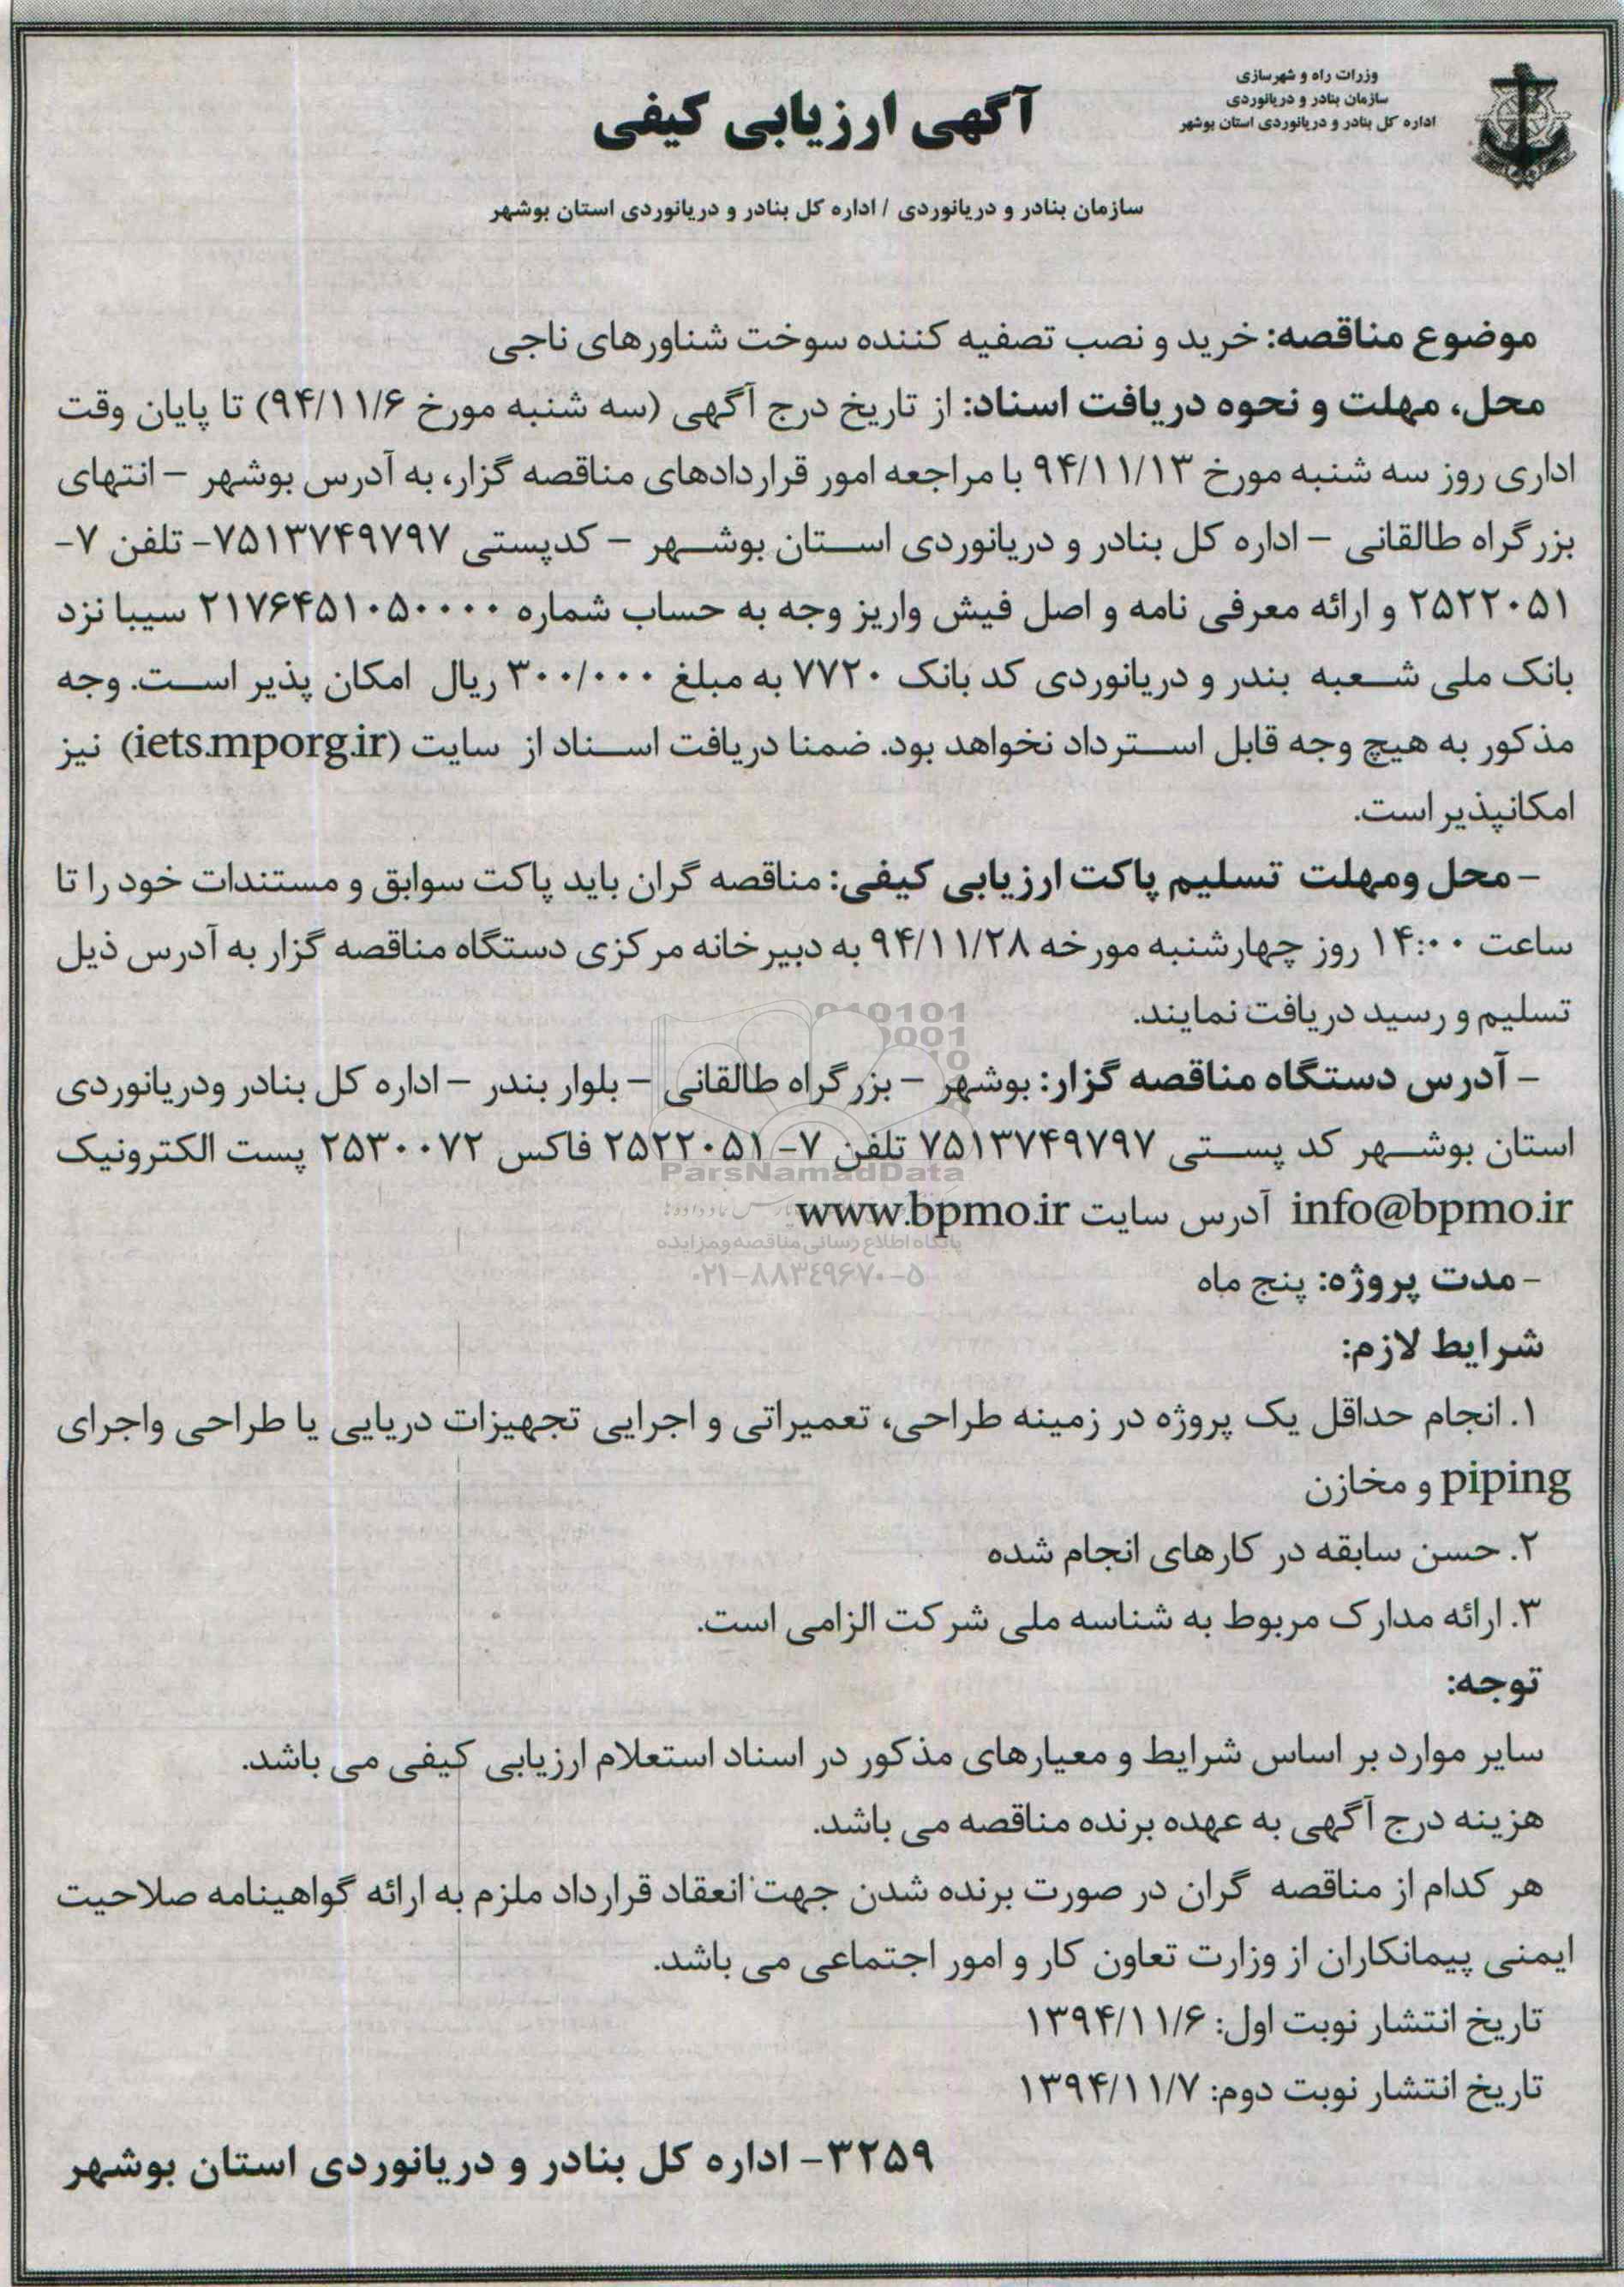 وزرات راه و شهرسازی
سازمان بنادر و دریانوردی
اداره کل بنادر و دریانوردی استان بوشهر
آگهی ارزیابی کیفی
سازمان بنادر و دریانوردی / اداره کل بنادر و دریانوردی استان بوشهر
موضوع مناقصه: خرید و نصب تصفیه کننده سوخت شناورهای ناجی
محل، مهلت و نحوه دریافت اسناد: از تاریخ درج آگهی (سه شنبه مورخ ۹۴/۱۱/۶) تا پایان وقت
اداری روز سه شنبه مورخ ۹۴/۱۱/۱۳ با مراجعه امور قراردادهای مناقصه گزار، به آدرس بوشهر – انتهای
بزرگراه طالقانی – اداره کل بنادر و دریانوردی استان بوشهر – کدپستی ۷۵۱۳۷۴۹۷۹۷- تلفن ۷-
۲۵۲۲۰۵۱ و ارائه معرفی نامه و اصل فیش واریز وجه به حساب شماره ۲۱۷۶۴۵۱۰۵۰۰۰۰ سیبا نزد
بانک ملی شعبه بندر و دریانوردی کد بانک ۷۷۲۰ به مبلغ ۳۰۰/۰۰۰ ریال امکان پذیر است. وجه
مذکور به هیچ وجه قابل استرداد نخواهد بود. ضمنا دریافت اسناد از سایت (iets.mporg.ir) نیز
امکانپذیر است.
– محل ومهلت تسلیم پاکت ارزیابی کیفی: مناقصه گران باید پاکت سوابق و مستندات خود را تا
ساعت ۱۴:۰۰ روز چهارشنبه مورخه ۹۴/۱۱/۲۸ به دبیرخانه مرکزی دستگاه مناقصه گزار به آدرس ذیل
تسلیم و رسید دریافت نمایند.
– آدرس دستگاه مناقصه گزار: بوشهر – بزرگراه طالقانی – بلوار بندر – اداره کل بنادر ودریانوردی
استان بوشهر کد پستی ۷۵۱۳۷۴۹۷۹۷ تلفن ۷- ۲۵۲۲۰۵۱ فاکس ۲۵۳۰۰۷۲ پست الکترونیک
info@bpmo.ir آدرس سایت www.bpmo.ir
ParsNamadData
پایگاه اطلاع رسانی مناقصه ومزایده
۰۲۱-۸۸۳۴۹۶۷۰-۵
– مدت پروژه: پنج ماه
شرایط لازم:
۱. انجام حداقل یک پروژه در زمینه طراحی، تعمیراتی و اجرایی تجهیزات دریایی یا طراحی واجرای
piping و مخازن
۲. حسن سابقه در کارهای انجام شده
۳. ارائه مدارک مربوط به شناسه ملی شرکت الزامی است.
توجه:
سایر موارد بر اساس شرایط و معیارهای مذکور در اسناد استعلام ارزیابی کیفی می باشد.
هزینه درج آگهی به عهده برنده مناقصه می باشد.
هر کدام از مناقصه گران در صورت برنده شدن جهت انعقاد قرارداد ملزم به ارائه گواهینامه صلاحیت
ایمنی پیمانکاران از وزارت تعاون کار و امور اجتماعی می باشد.
تاریخ انتشار نوبت اول: ۱۳۹۴/۱۱/۶
تاریخ انتشار نوبت دوم: ۱۳۹۴/۱۱/۷
۳۲۵۹- اداره کل بنادر و دریانوردی استان بوشهر